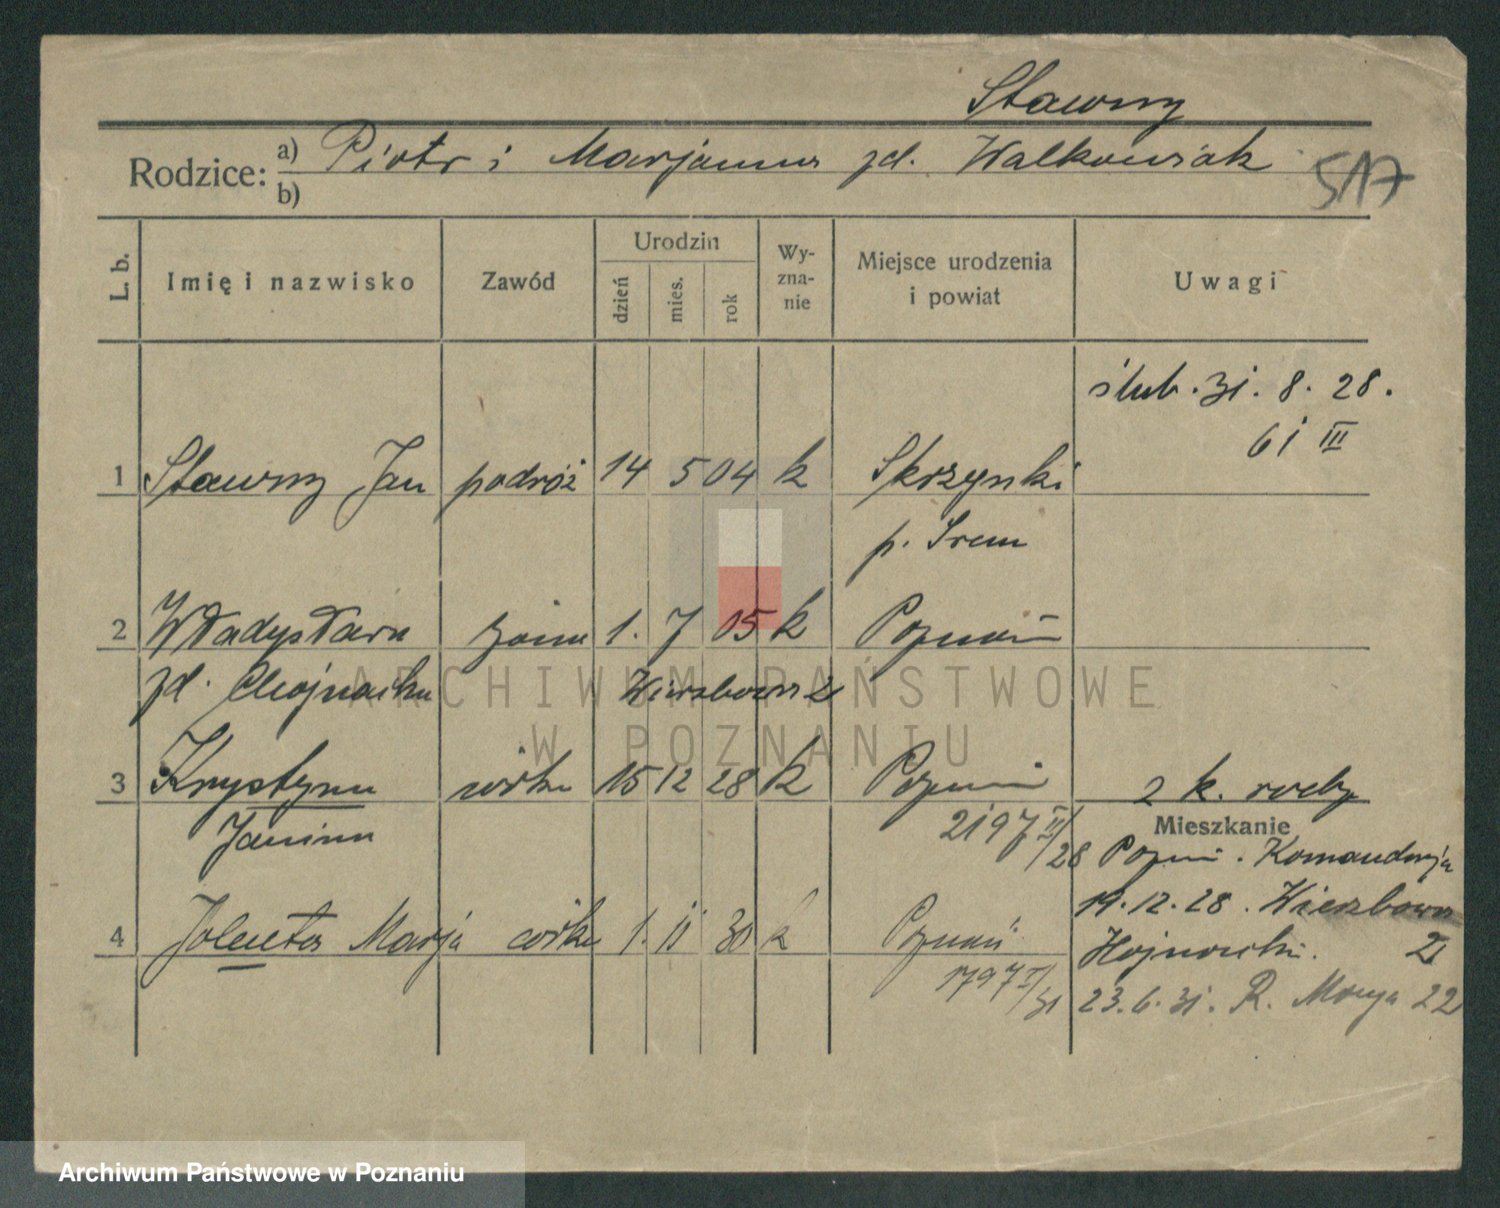 Sławny
Rodzice: a) Piotr i Marjanna zd. Walkowiak
b)
517
L. b.
Imię i nazwisko
Zawód
Urodzin
dzień
mies.
rok
Wy-
zna-
nie
Miejsce urodzenia
i powiat
Uwagi
ślub. 31. 8. 28.
61 III
1 Sławny Jan podróż 14 5 04 k Skrzynki
p. Śrem
2 Władysława żona 1. 7 05 k Poznań
zd. Chojnacka Wierzbowa 2
ARCHIWUM PAŃSTWOWE
W POZNANIU
3 Krystyna córka 15 12 28 k Poznań 2 k. rodz.
Janina 2197 II/28
Mieszkanie
Pozn. Komandorja
4 Jolenta Marja córka 1. 11 30 k Poznań
1797 I/31
19.12.28. Wierzbowa
21
23.6.31. R. Marja 22
Archiwum Państwowe w Poznaniu